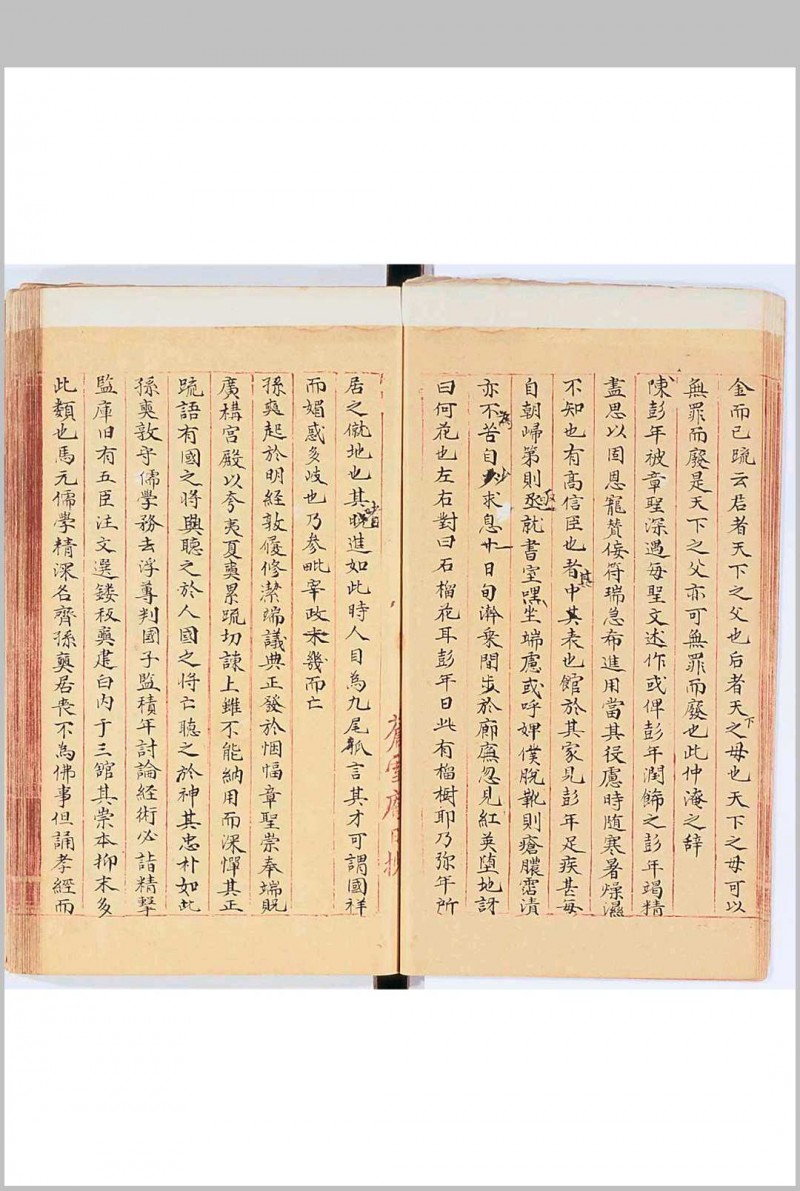 金而已疏云君者天下之父也后者天下之母也天下之母可以
無罪而廢是天下之父亦可無罪而廢也此仲淹之辞
陳彭年被章聖深遇每聖文述作或俾彭年潤飾之彭年竭精
盡思以固恩寵贊佞符瑞急布進用當其役慮時随寒暑燥濕
不知也有髙信臣也者中其表也館於其家見彭年足疾甚每
其
自朝歸第則丞就書室嘿坐端慮或呼婢僕脫靴則瘡膿霑漬
亟
亦不苦自少求息廿一日旬澣衆閑步於廊廡忽見紅英墮地訝
為
少
曰何花也左右對曰石榴花耳彭年曰此有榴樹耶乃弥年所
居之僦地也其進如此時人目為九尾狐言其才可謂國祥
而媚惑多岐也乃參毗宰政未幾而亡
孫奭起於明經敦履修潔端議典正發於悃愊章聖崇奉端貺
廣構宮殿以夸夷夏奭累疏切諫上雖不能納用而深憚其正
疏語有國之将興聽之於人國之将亡聽之於神其忠朴如此
孫奭敦守儒學務去浮尊判國子監積年討論経術必詣精擊
監庫旧有五臣注文選鏤板奭建白内于三館其崇本抑末多
此類也馬元儒學精深名齊孫奭居喪不為佛事但誦孝經而